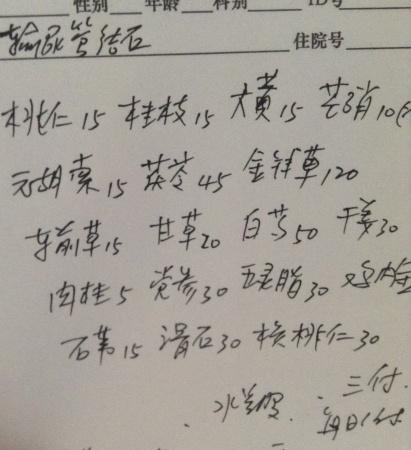 性别 年龄 科别 ID号
输尿管结石 住院号
桃仁15 桂枝15 大黄15 芒硝10
元胡索15 茯苓45 金钱草120
车前草15 甘草20 白芍50 干姜30
肉桂5 党参30 五灵脂30 鸡内金
石苇15 滑石30 核桃仁30
水煎服 三付
每日1付